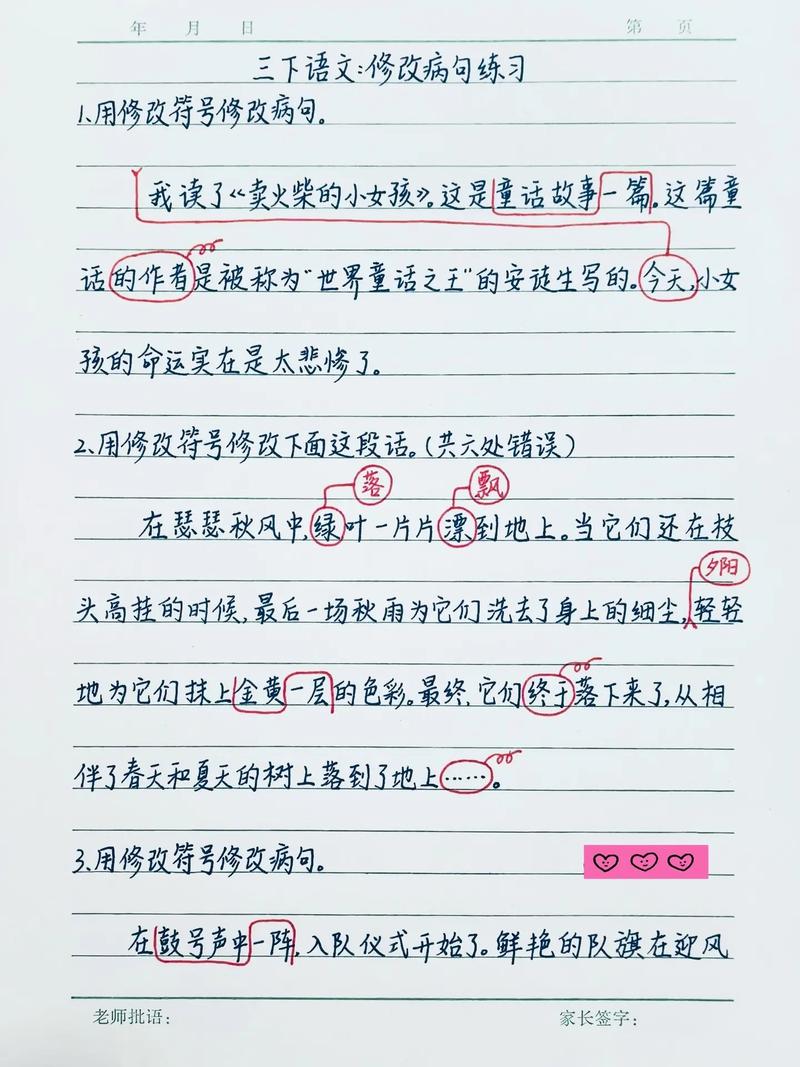 年 月 日 第 页
三下语文:修改病句练习
1.用修改符号修改病句。
我读了《卖火柴的小女孩》。这是童话故事一篇。这篇童
话的作者是被称为“世界童话之王”的安徒生写的。今天,小女
孩的命运实在是太悲惨了。
2.用修改符号修改下面这段话。(共六处错误)
落 飘
在瑟瑟秋风中,绿叶一片片漂到地上。当它们还在枝
夕阳
头高挂的时候,最后一场秋雨为它们洗去了身上的细尘,轻轻
地为它们抹上金黄一层的色彩。最终,它们终于落下来了,从相
伴了春天和夏天的树上落到了地上……。
3.用修改符号修改病句。
在鼓号声中一阵,入队仪式开始了。鲜艳的队旗在迎风
老师批语: 家长签字: